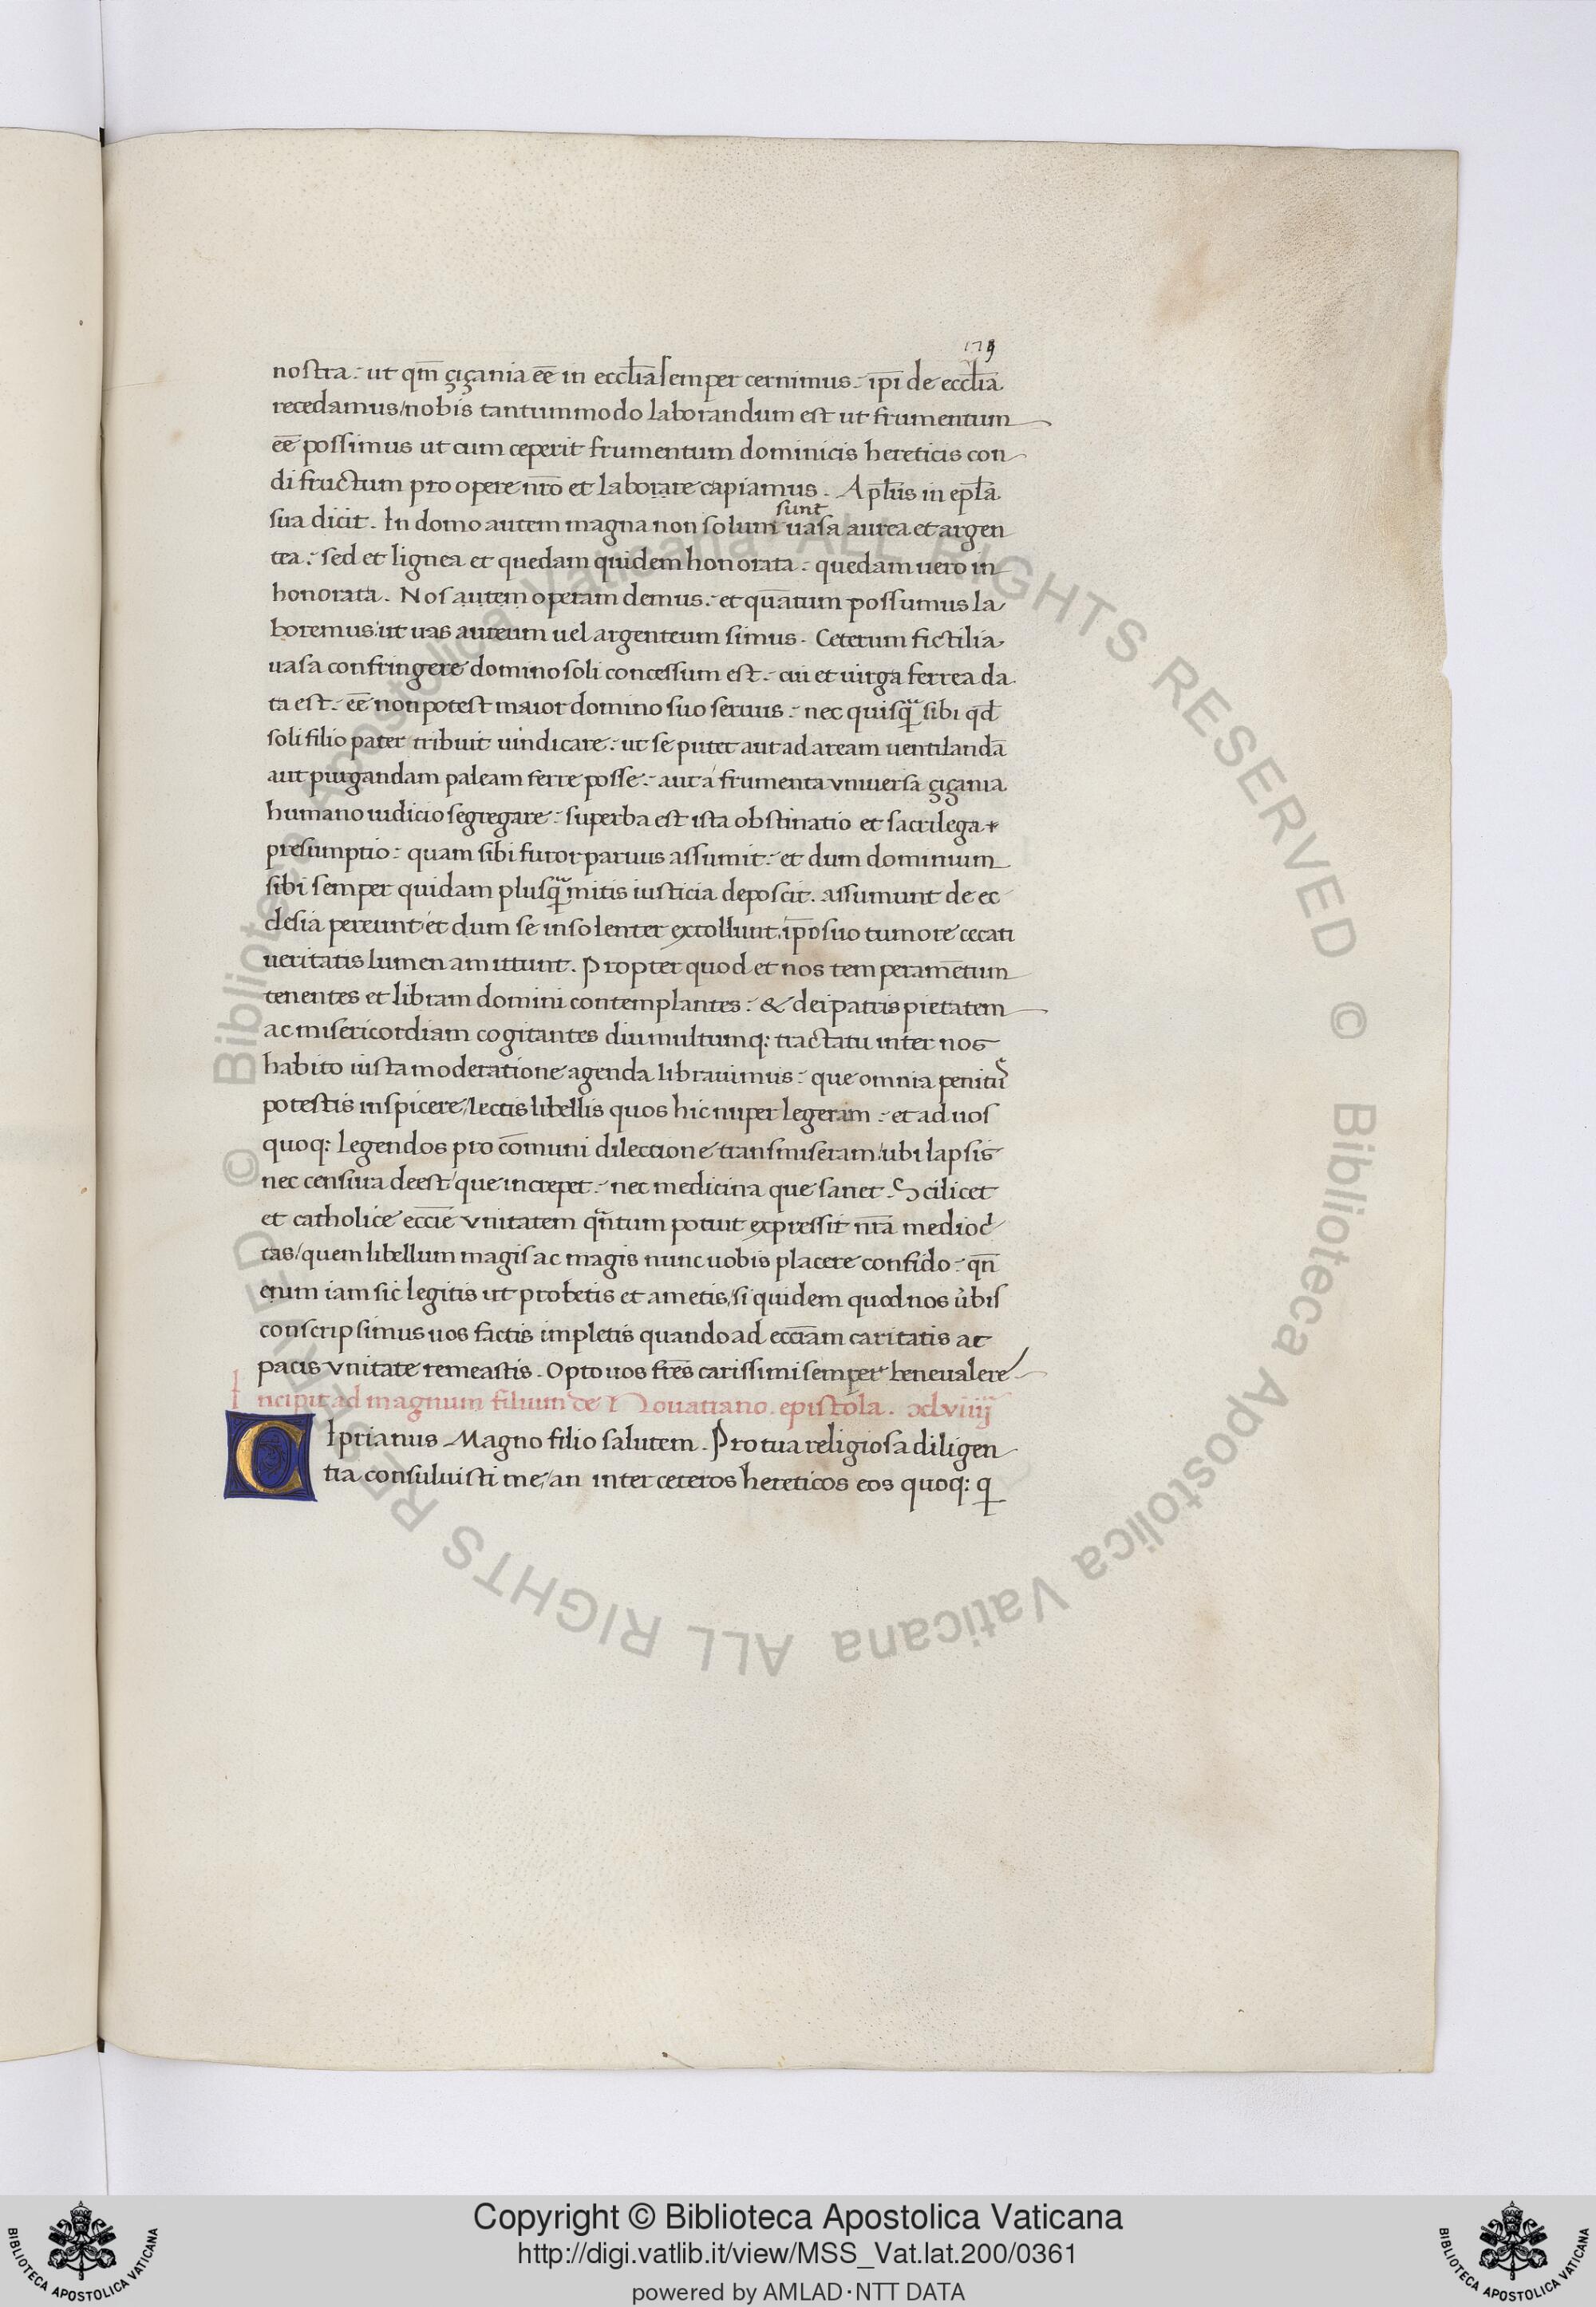 179
nostra : ut qm̄ çiçania eē in eccl̄ia semper cernimus : ip̄i de eccl̄ia
recedamus / nobis tantummodo laborandum est ut frumentum
eē possimus ut cum ceperit frumentum dominicis hereticis con
di fructum pro opere nr̄o et laborare capiamus . Apl̄us in epl̄a
sua dicit . In domo autem magna non solum sunt uasa aurea et argen
tea : sed et lignea et quedam quidem honorata : quedam uero in
honorata . Nos autem operam demus : et quātum possumus la
boremus : ut uas aureum uel argenteum simus . Ceterum fictilia
uasa confringere domino soli concessum est : cui et uirga ferrea da
ta est : eē non potest maior domino suo seruus : nec quisq̄ sibi qd̄
soli filio pater tribuit uindicare : ut se putet aut ad aream uentilandā
aut purgandam paleam ferre posse : aut a frumenta vniuersa çiçania
humano iudicio segregare : superba est ista obstinatio et sacrilega
presumptio : quam sibi furor paruus assumit : et dum dominium
sibi semper quidam plusq̄ mitis iusticia deposcit . assumunt de ec
clesia pereunt et dum se insolenter extollunt ip̄o suo tumore cecati
ueritatis lumen amittunt . Propter quod et nos temperamētum
tenentes et libram domini contemplantes : & dei patris pietatem
ac misericordiam cogitantes diu multumq: tractatu inter nos
habito iusta moderatione agenda librauimus : que omnia penitus
potestis inspicere / lectis libellis quos hic nuper legeram : et ad uos
quoq: legendos pro cōmuni dileccione transmiseram / ubi lapsis
nec censura deest que increpet : nec medicina que sanet . Scilicet
et catholice ecc̄ie vnitatem qn̄tum potuit expressit nr̄a medioc
tas / quem libellum magis ac magis nunc uobis placere confido : qn̄
enim iam sic legitis ut probetis et ametis / si quidem quod nos u̇bis
conscripsimus uos factis impletis quando ad ecc̄iam caritatis ac
pacis vnitate remeastis . Opto uos fr̄es carissimi semper bene ualere
Incipit ad magnum filium de Nouatiano . epistola . xlviiij
Ciprianus Magno filio salutem . Pro tua religiosa diligen
tia consuluisti me / an inter ceteros hereticos eos quoq: q
Copyright © Biblioteca Apostolica Vaticana
http://digi.vatlib.it/view/MSS_Vat.lat.200/0361
powered by AMLAD·NTT DATA
BIBLIOTECA APOSTOLICA VATICANA
BIBLIOTECA APOSTOLICA VATICANA
© Biblioteca Apostolica Vaticana ALL RIGHTS RESERVED © Biblioteca Apostolica Vaticana ALL RIGHTS RESERVED